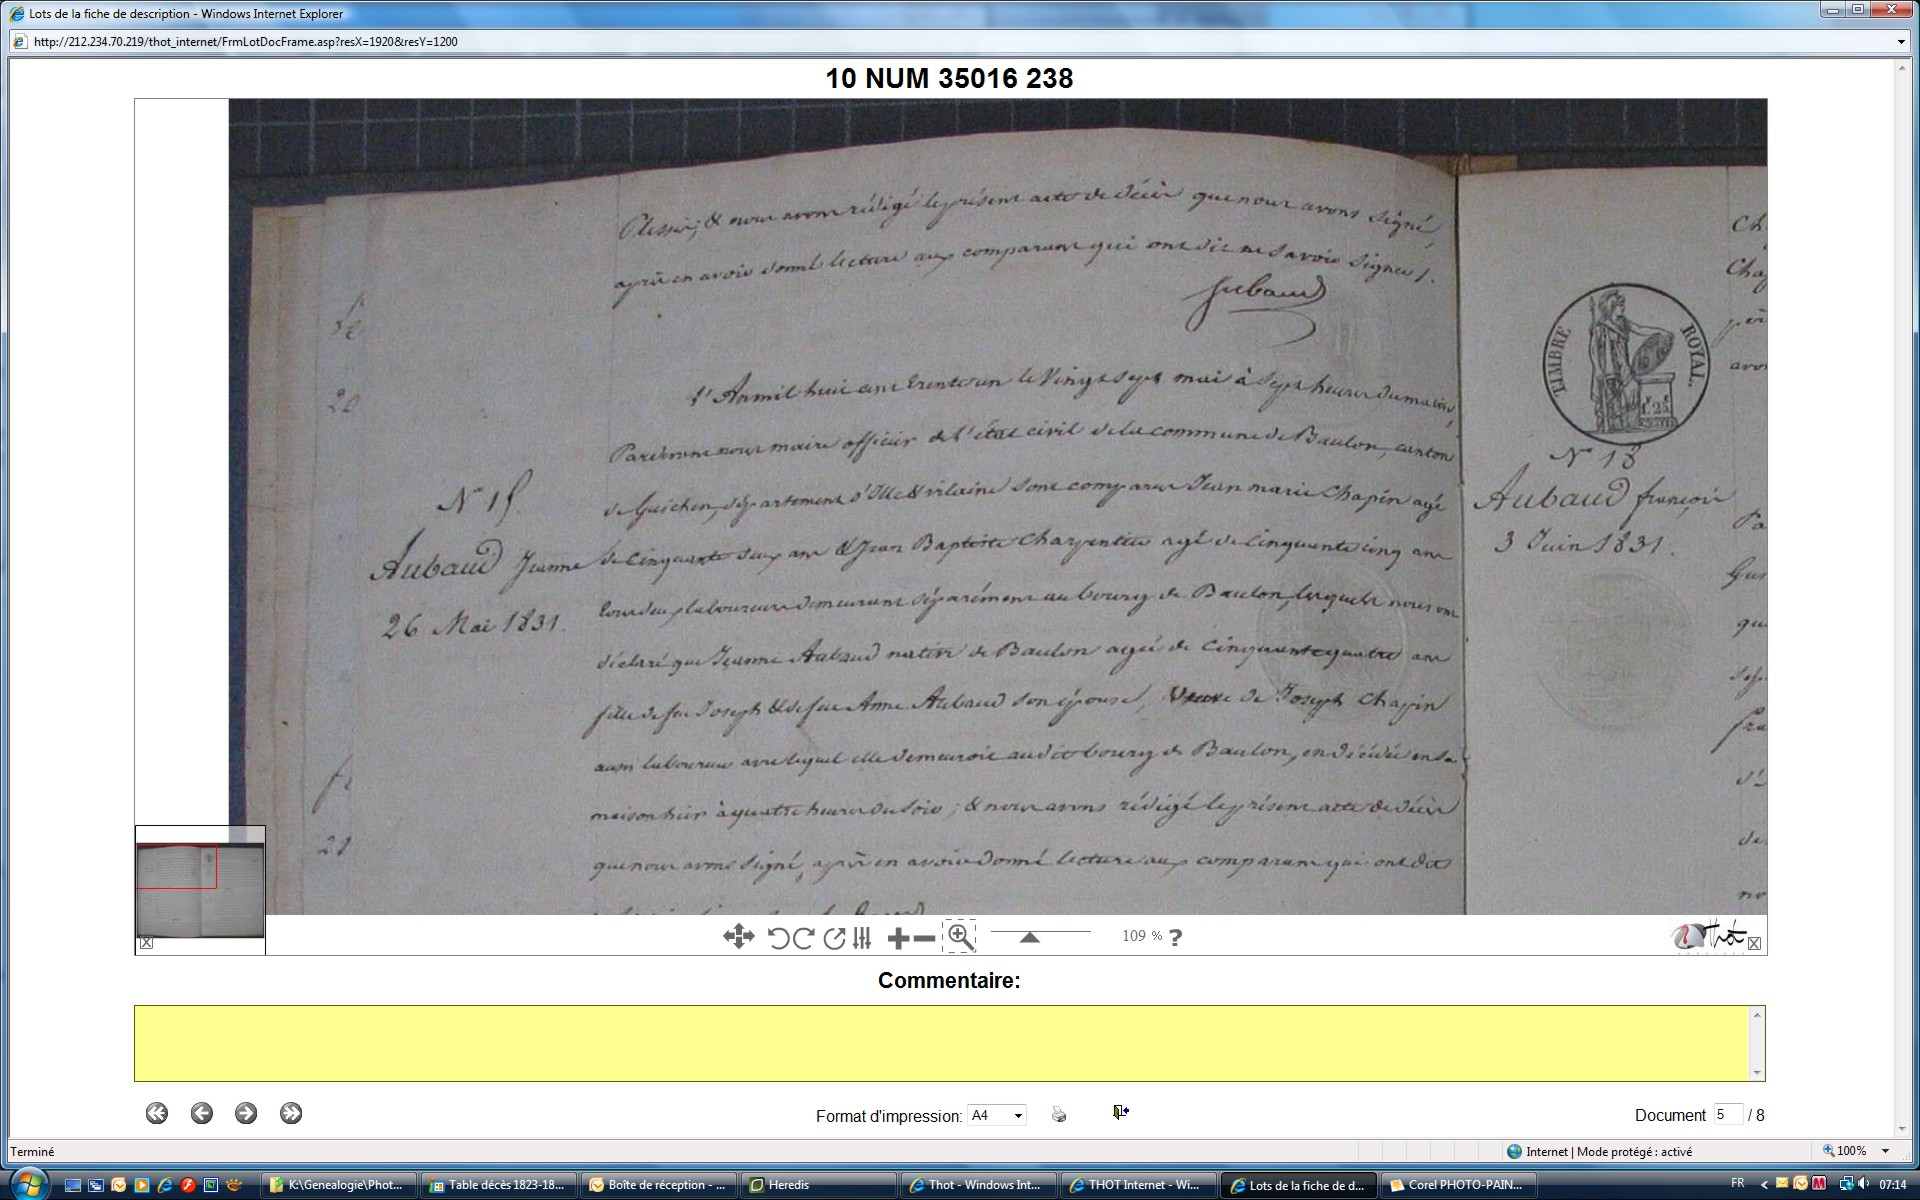 Lots de la fiche de description - Windows Internet Explorer
http://212.234.70.219/thot_internet/FrmLotDocFrame.asp?resX=1920&resY=1200
10 NUM 35016 238
Plessix; & nous avons rédigé le présent acte de décès que nous avons signé,
après en avoir donné lecture aux comparans qui ont dit ne savoir signer /.
L'An mil huit cent trente un le vingt sept mai à sept heures du matin,
Pardevant nous maire officier de l'état civil de la commune de Baulon, canton
de Guichen, département d'Ille & vilaine sont comparus Jean marie Chapin agé
de cinquante deux ans & Jean Baptiste Charpentier agé de cinquante cinq ans
tous deux laboureurs demeurant séparément au bourg de Baulon, lesquels nous ont
déclaré que Jeanne Aubaud native de Baulon agée de cinquante quatre ans
fille de feu Joseph & de feue Anne Aubaud son épouse, veuve de Joseph Chapin
laboureur avec lequel elle demeuroit audit bourg de Baulon, en décédée en sa
maison hier à quatre heures du soir; & nous avons rédigé le présent acte de décès
que nous avons signé, après en avoir donné lecture aux comparans qui ont dit
Aubaud Jeanne
26 Mai 1831.
TIMBRE ROYAL.
N° 18
Aubaud françois
3 Juin 1831.
109 % ?
Thot
Commentaire:
Format d'impression: A4
Document 5 / 8
Terminé
Internet | Mode protégé : activé
100%
K:\Genealogie\Phot...
Table décès 1823-18...
Boîte de réception - ...
Heredis
Thot - Windows Int...
THOT Internet - Wi...
Lots de la fiche de d...
Corel PHOTO-PAIN...
FR
07:14